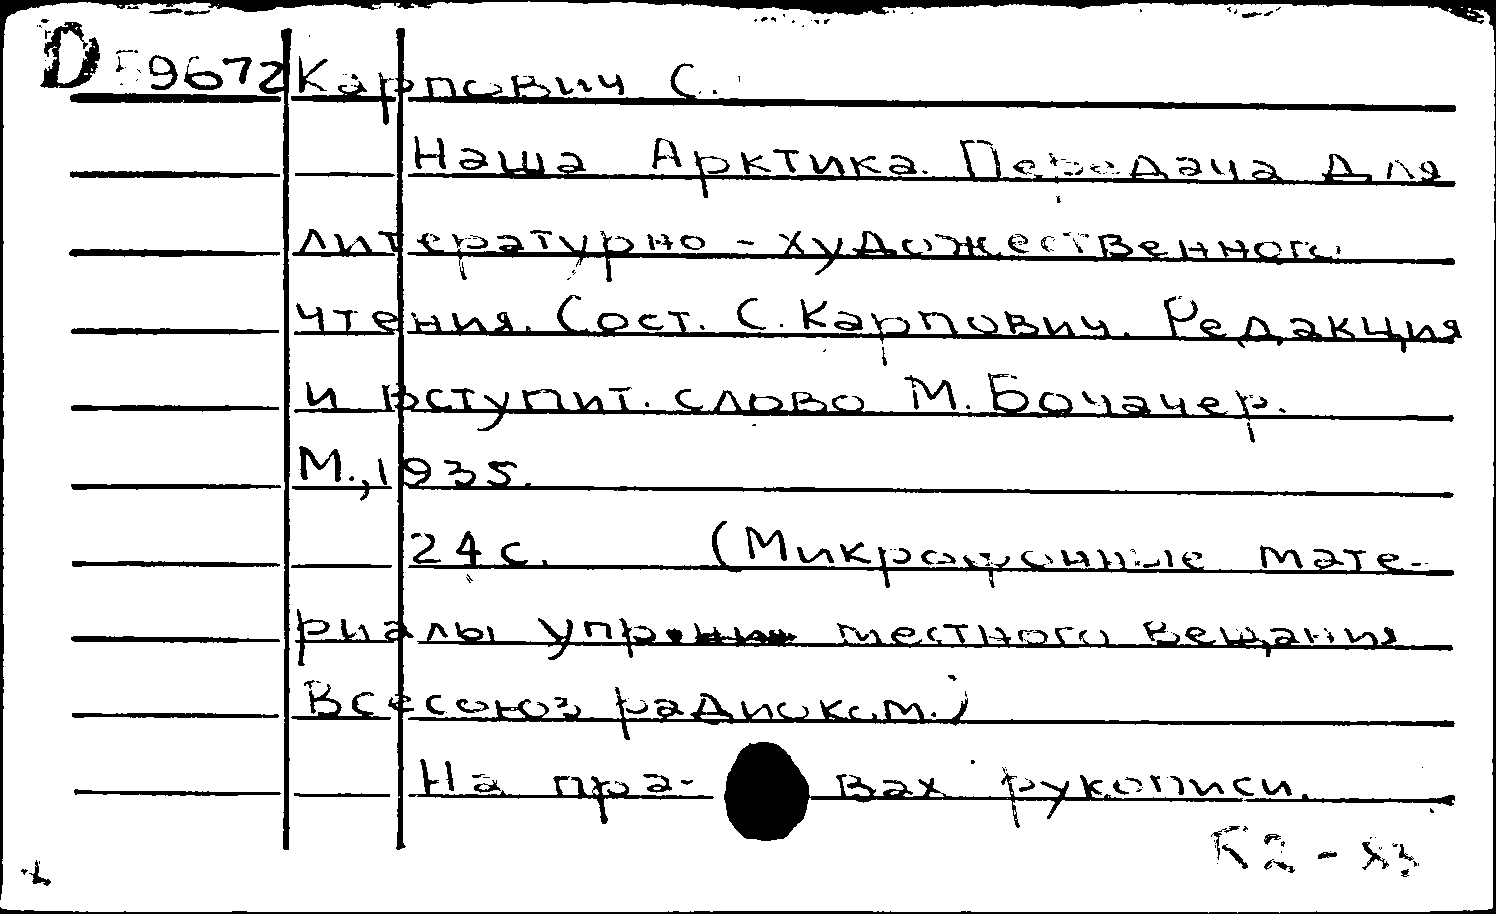 D 59672 Карпович С.
Наша Арктика. Передача для
литературно-художественного
чтения. Сост. С. Карпович. Редакция
и вступит. слово М. Бочачер.
М., 1935.
24 с. (Микрофонные мате-
риалы упр. местного вещания
Всесоюз радиоком.)
На пра- вах рукописи.